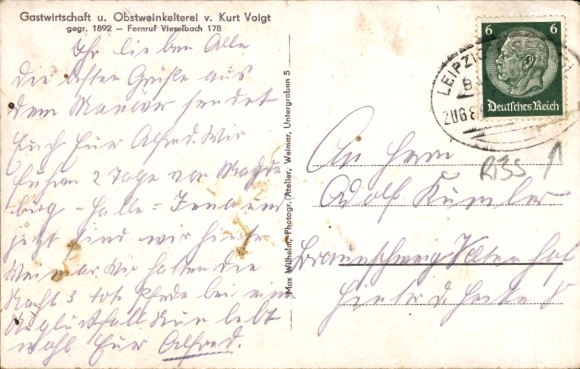 Gastwirtschaft u. Obstweinkelterei v. Kurt Voigt
gegr. 1892 — Fernruf Vieselbach 178
Ihr lieben Alle
Die besten Grüße aus
dem Manöver sendet
Euch Euer Alfred. Wir
fuhren 2 Tage von Magde
burg - Halle - Jena und
jetzt sind wir hinter
Weimar. Wir hatten die
Nacht 3 tote Pferde bei ein
Unglücksfall. Nun lebt
wohl Euer Alfred.
Max Wilhelm, Photogr. Atelier, Weimar, Untergraben 5
6 6
Deutsches Reich
LEIPZIG
ZUG
R135
An Herrn
Adolf
Braunschweig